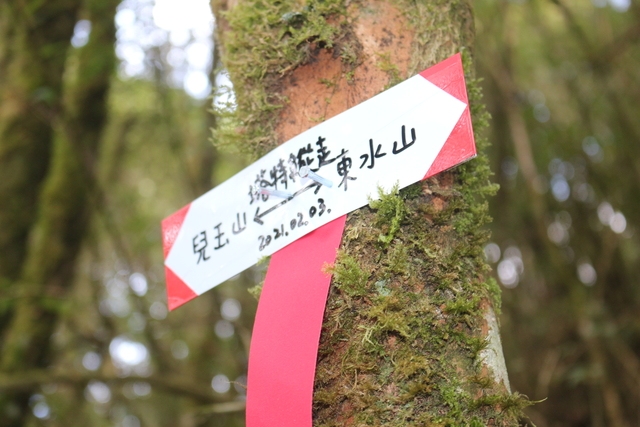 塔特縱走
兒玉山 ⟷ 東水山
2021.02.03.